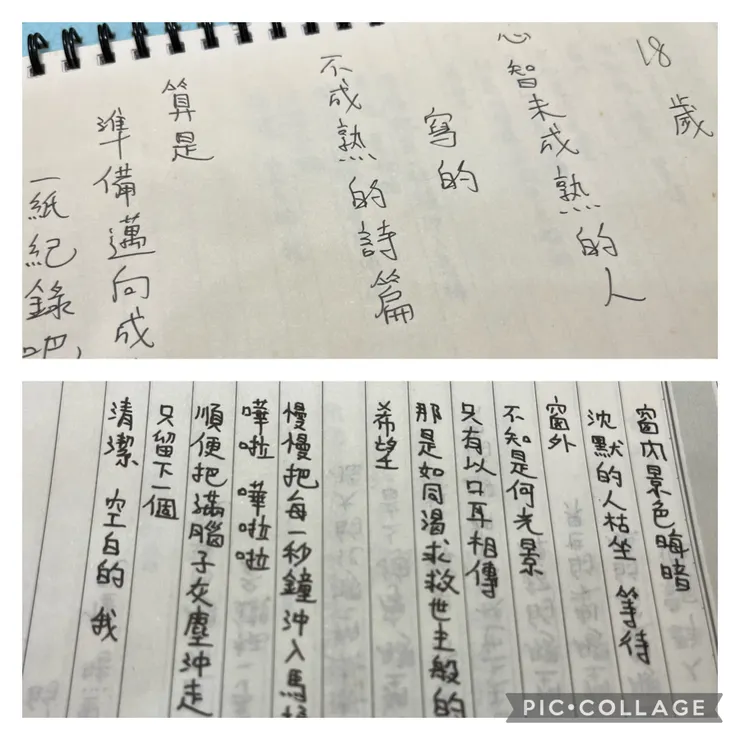 18歲
心智未成熟的人
寫的
不成熟的詩篇
算是
準備邁向成
一紙紀錄吧，
窗內景色晦暗
沈默的人枯坐 等待
窗外
不知是何光景
只有以口耳相傳
那是如同渴求救世主般的
希望
慢慢把每一秒鐘沖入馬
嘩啦 嘩啦啦
順便把滿腦子灰塵沖走
只留下一個
清潔 空白的 我
PIC•COLLAGE